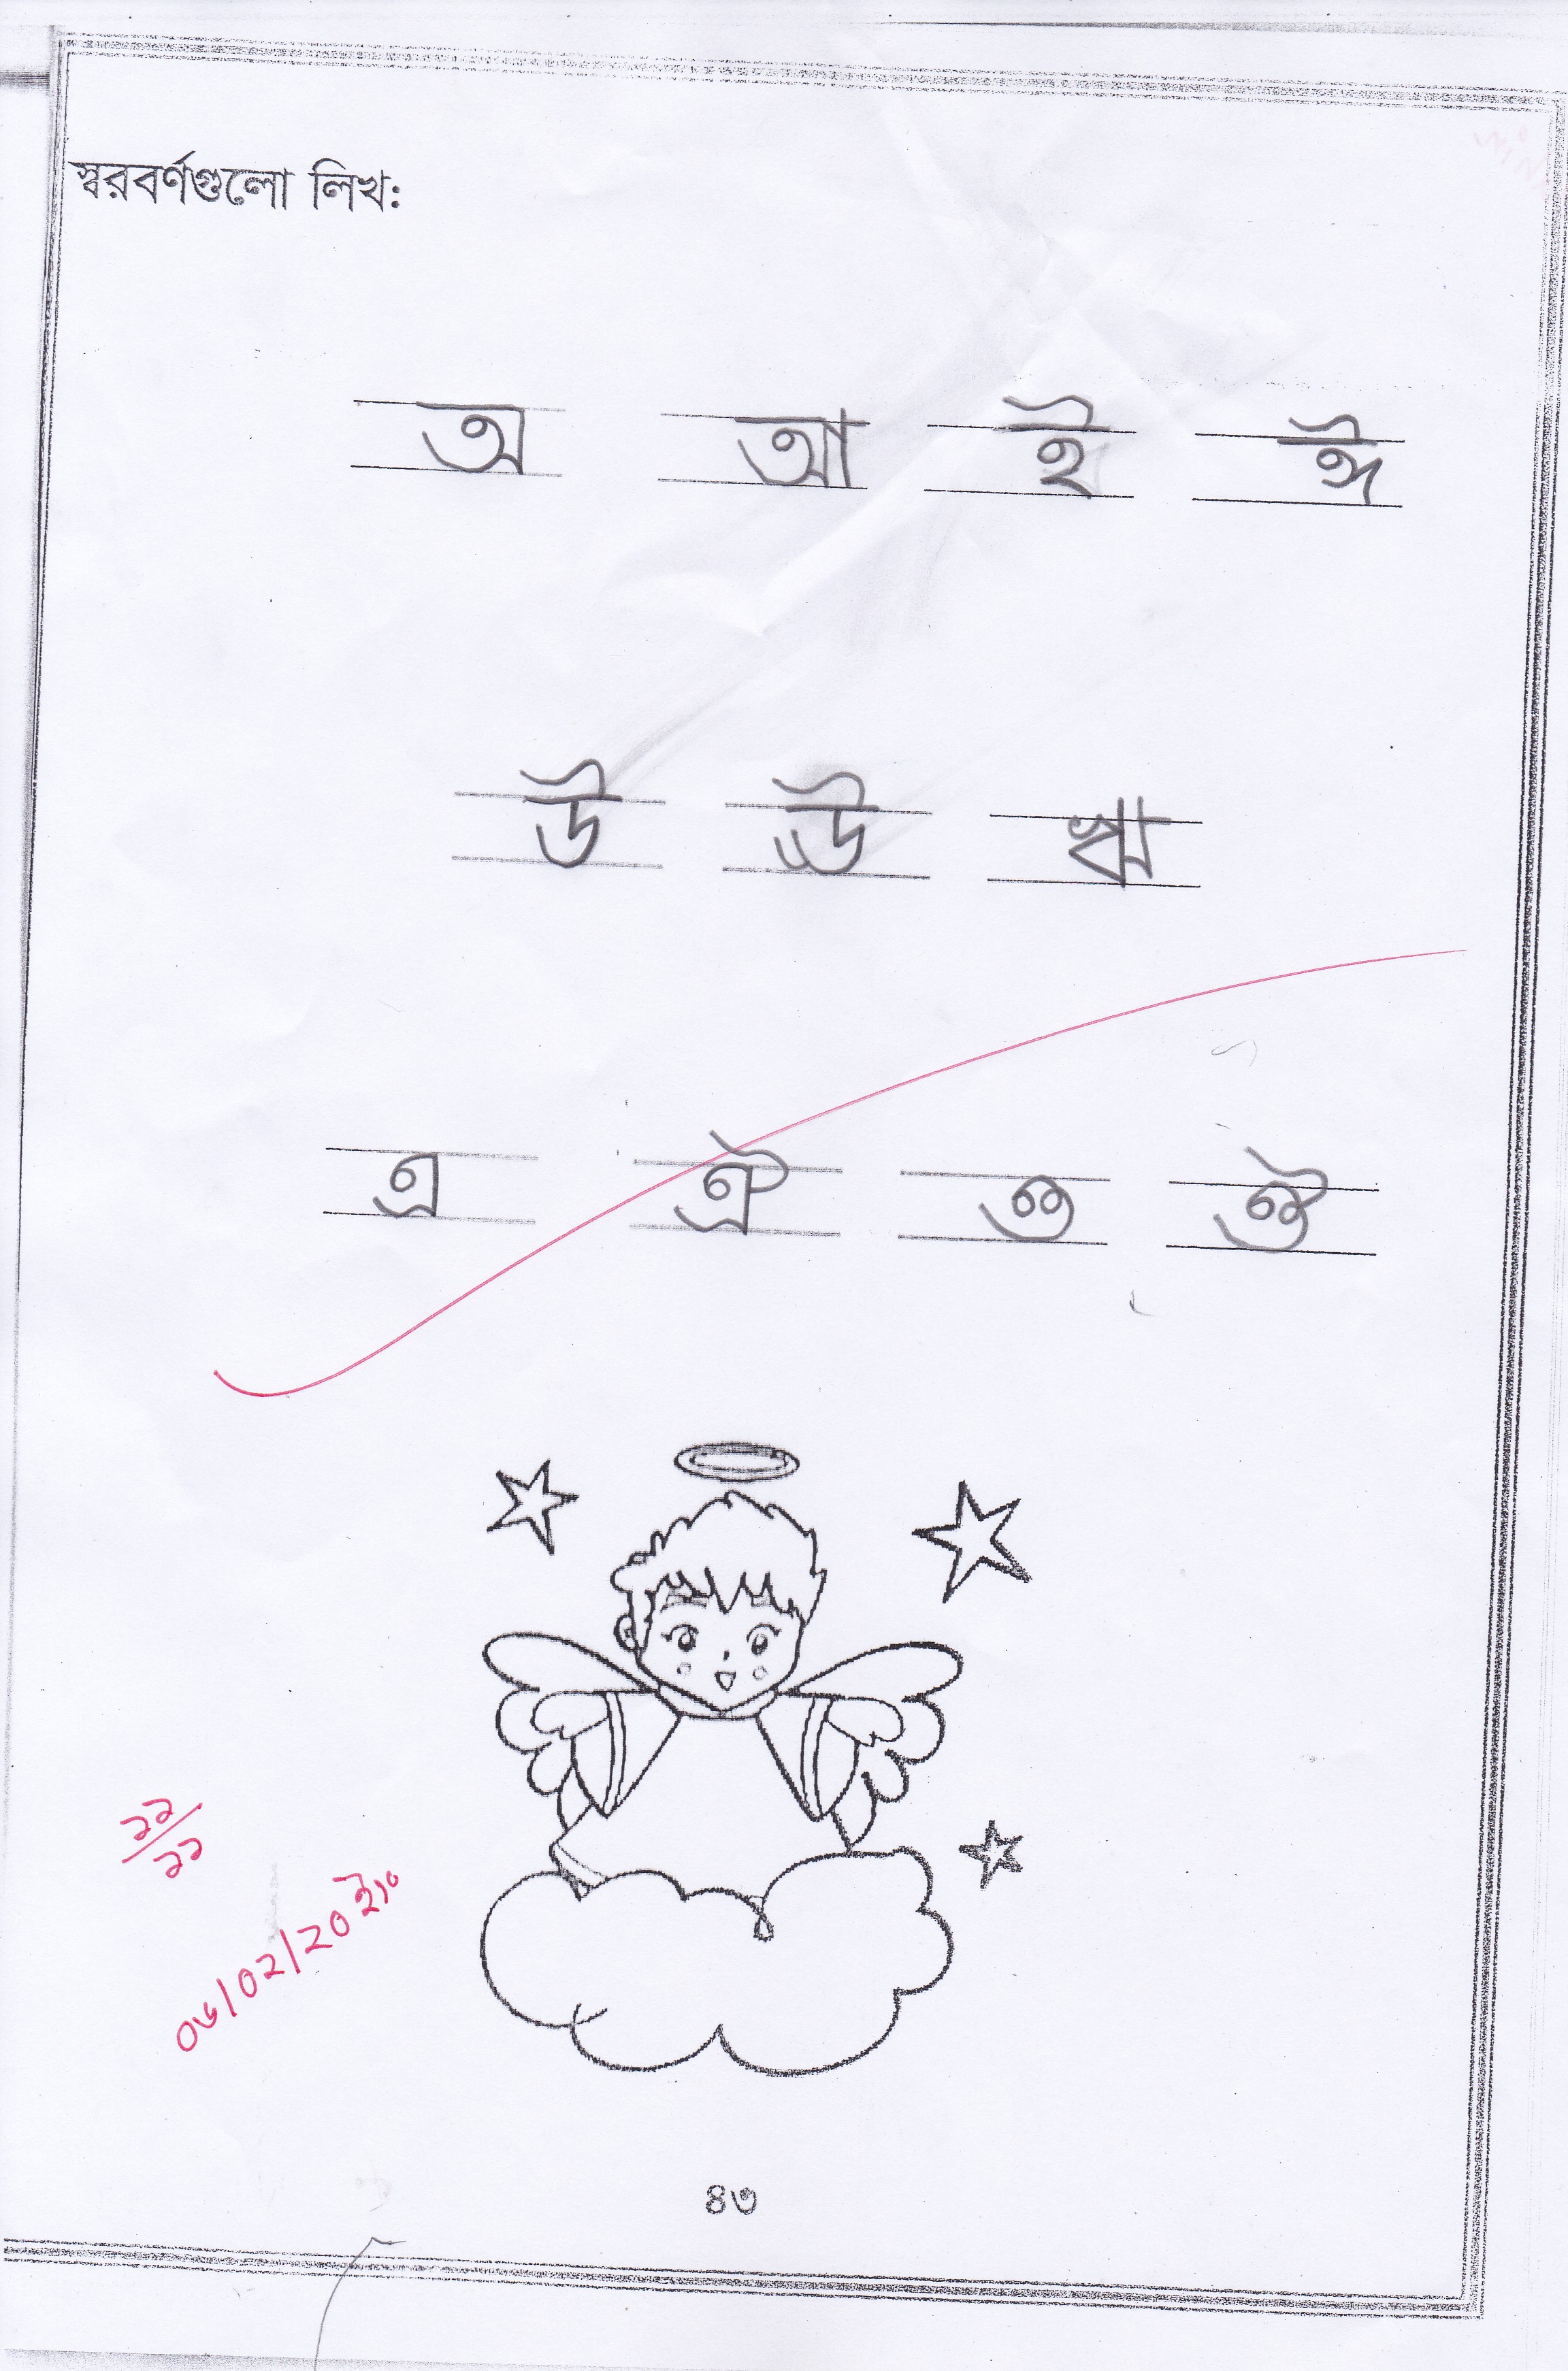 স্বরবর্ণগুলো লিখ:
অ আ ই ঈ
উ ঊ ঋ
এ ঐ ও ঔ
১১/১১
০৬/০২/২০ ইং
৪৩